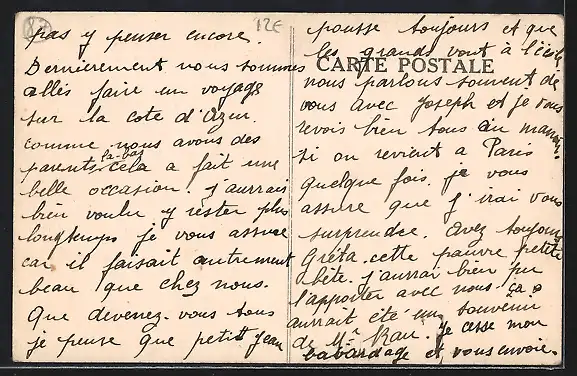 12E
pas y penser encore.
Dernièrement nous sommes
allés faire un voyage
sur la cote d'Azur.
comme nous avons des
parents là-bas cela a fait une
belle occasion. j'aurrais
bien voulu y rester plus
longtemps je vous assure
car il faisait autrement
beau que chez nous.
Que devenez-vous tous
je pense que petit Jean
pousse toujours et que
les grands vont à l'école
CARTE POSTALE
nous parlons souvent de
vous avec Joseph et je vous
revois bien tous au
si on revient à Paris
quelque fois. je vous
assure que j'irai vous
surprendre. avez toujours
Gréta. cette pauvre petite
bête. j'aurrai bien pu
l'apporter avec nous. ça
aurait été un souvenir
de Mr Rau. je cesse mon
babardage et vous envoie.